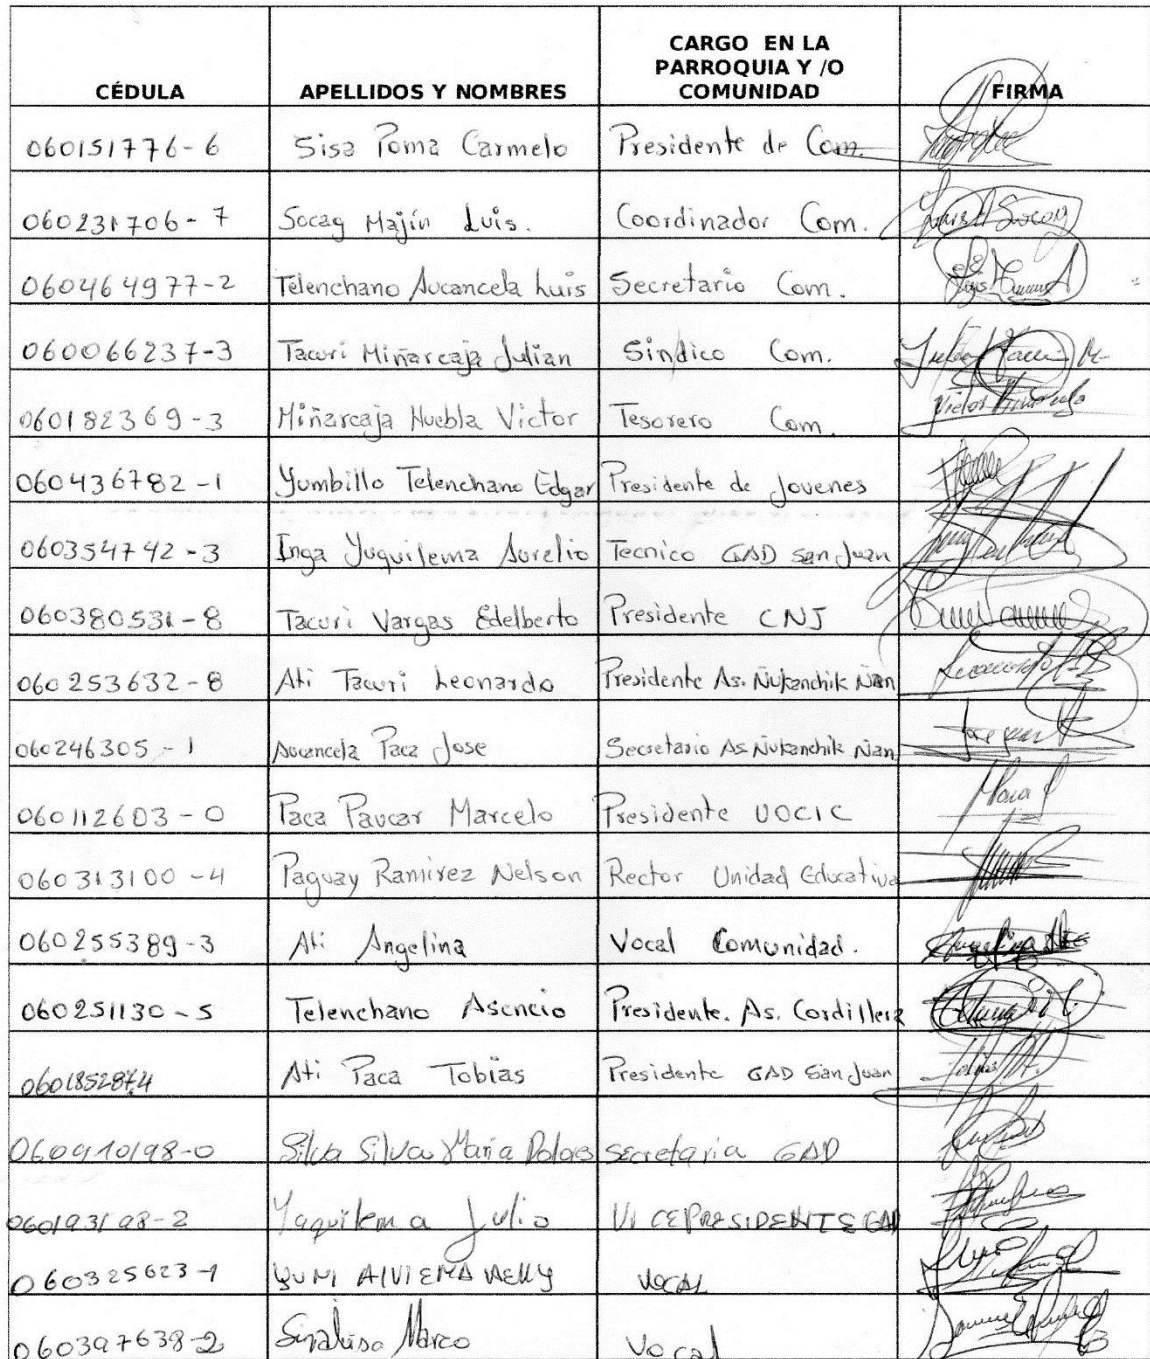 CÉDULA APELLIDOS Y NOMBRES CARGO EN LA PARROQUIA Y /O COMUNIDAD FIRMA
060151776-6 Sisa Poma Carmelo Presidente de Com.
060231706-7 Socag Majín Luis. Coordinador Com.
060464977-2 Telenchano Aucancela Luis Secretario Com.
060066237-3 Tacuri Miñarcaja Julian Sindico Com.
060182369-3 Miñarcaja Huebla Victor Tesorero Com.
060436782-1 Yumbillo Telenchano Edgar Presidente de Jovenes
060354742-3 Inga Yuquilema Aurelio Tecnico GAD San Juan
060380531-8 Tacuri Vargas Edelberto Presidente CNJ
060253632-8 Ati Tacuri Leonardo Presidente As. Ñukanchik Ñan
060246305-1 Aucancela Paca Jose Secretario As Ñukanchik Ñan
060112603-0 Paca Paucar Marcelo Presidente UOCIC
060313100-4 Paguay Ramirez Nelson Rector Unidad Educativa
060255389-3 Ati Angelina Vocal Comunidad.
060251130-5 Telenchano Asencio Presidente. As. Cordillera
Ati Paca Tobias Presidente GAD San Juan
Silva Silva Maria Dolores Secretaria GAD
Yaquilema Julio VICEPRESIDENTE GAD
060325623-1 VOCAL
060397638-2 Marco Vocal